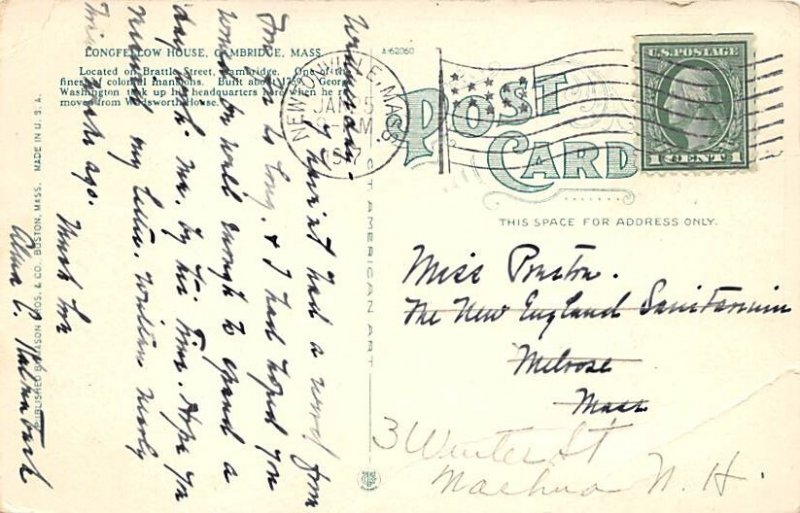 LONGFELLOW HOUSE, CAMBRIDGE, MASS.
Located on Brattle Street, Cambridge. One of the
finest of colonial mansions. Built about 1759. George
Washington took up his headquarters here when he
moved from Wadsworth House.
A-62060
POST
CARD
U.S. POSTAGE
1 CENT 1
NEWTONVILLE, MASS.
JAN 5
THIS SPACE FOR ADDRESS ONLY.
Miss Preston.
The New England Sanitarium
Melrose
Mass
3 Winter St
Nashua N. H.
Wednesday.
Why haven't had a word from
you so long. & I had hoped you
would be well enough to spend a
day with me by this time. Hope you
received my letter. Written nearly
three weeks ago.
Much love
Alma E.
PUBLISHED BY MASON BROS. & CO. BOSTON, MASS. MADE IN U.S.A.
AMERICAN ART